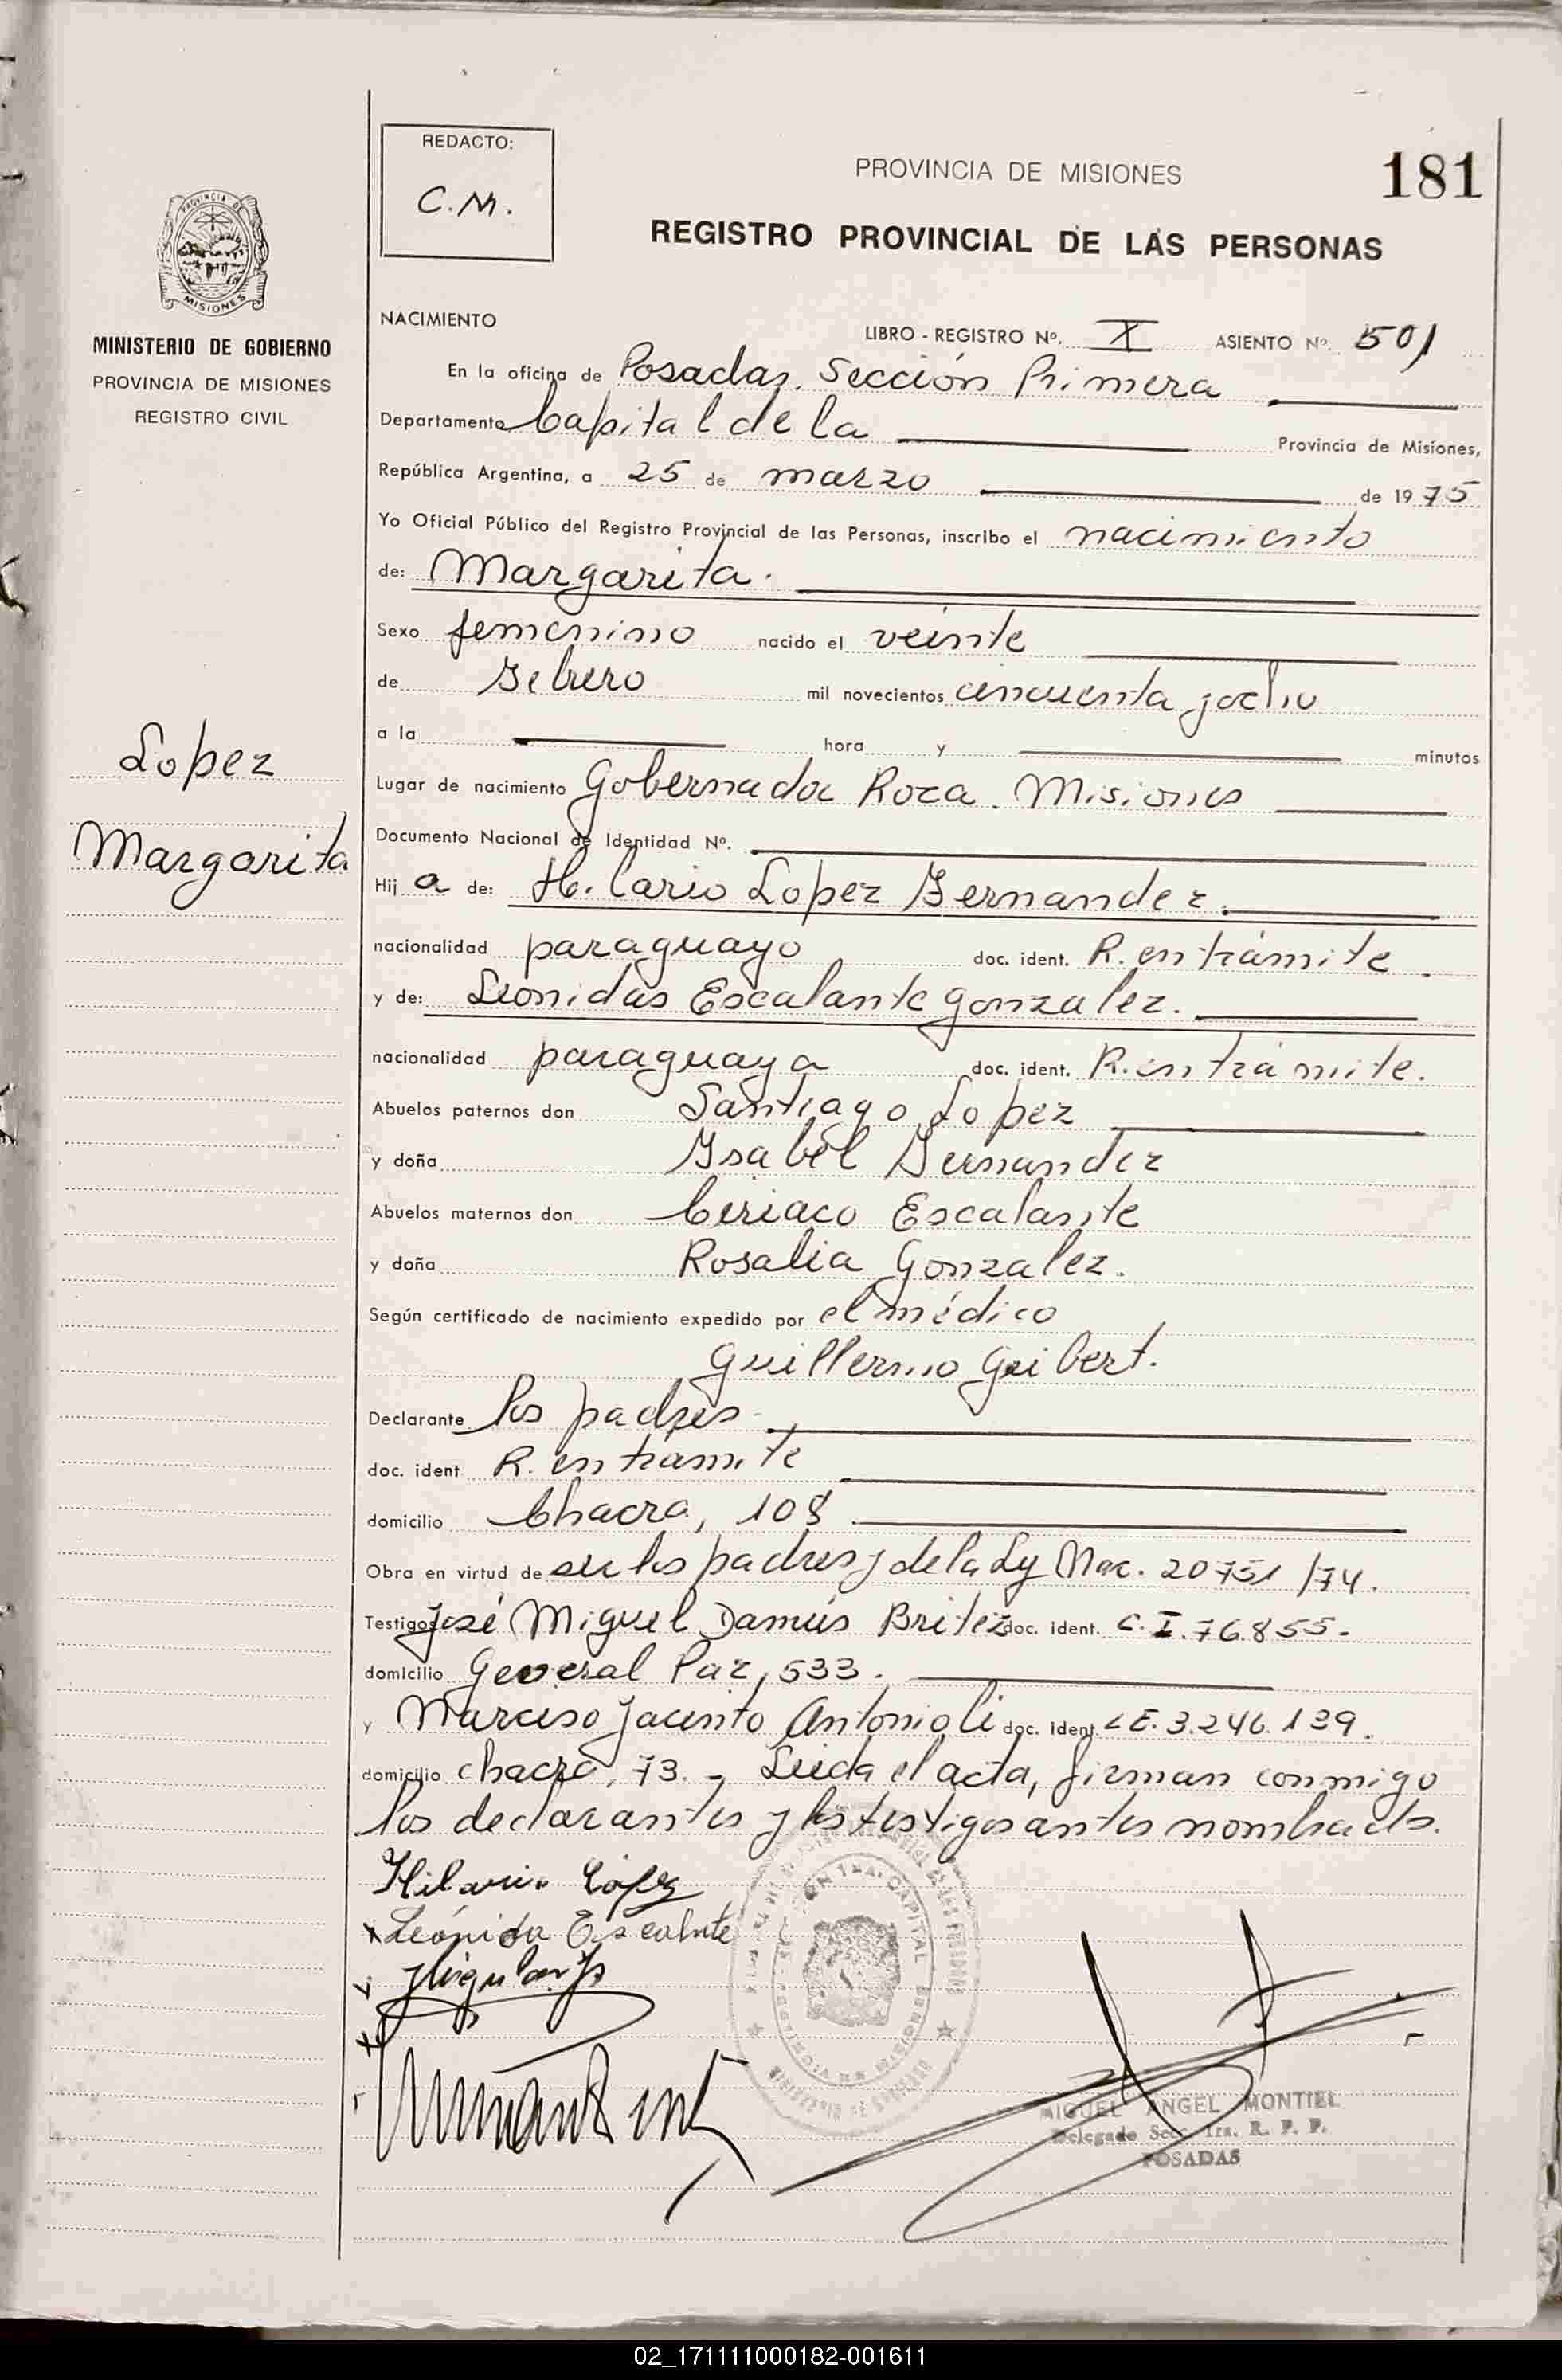 REDACTO:
C.M.
PROVINCIA DE MISIONES
181
REGISTRO PROVINCIAL DE LAS PERSONAS
PROVINCIA DE
MISIONES
MINISTERIO DE GOBIERNO
PROVINCIA DE MISIONES
REGISTRO CIVIL
Lopez
Margarita
NACIMIENTO
LIBRO - REGISTRO Nº. X ASIENTO Nº. 501
En la oficina de Posadas. Sección Primera
Departamento Capital de la Provincia de Misiones,
República Argentina, a 25 de marzo de 1975
Yo Oficial Público del Registro Provincial de las Personas, inscribo el nacimiento
de: Margarita.
Sexo femenino nacido el veinte
de Febrero mil novecientos cincuenta y ocho
a la hora y minutos
Lugar de nacimiento Gobernador Roca. Misiones
Documento Nacional de Identidad Nº.
Hij a de: Hilario Lopez Fernandez.
nacionalidad paraguayo doc. ident. R. en trámite.
y de: Leonidas Escalante Gonzalez.
nacionalidad paraguaya doc. ident. R. en trámite.
Abuelos paternos don Santiago Lopez
y doña Ysabel Fernandez
Abuelos maternos don Ciriaco Escalante
y doña Rosalia Gonzalez.
Según certificado de nacimiento expedido por el médico
Guillermo Guibert.
Declarante los padres
doc. ident R. en trámite
domicilio Chacra, 108
Obra en virtud de ser los padres y de la Ley Nac. 20751/74.
Testigos José Miguel Damús Britez doc. ident. C.I. 76.855.
domicilio General Paz, 533.
y Narciso Jacinto Antonioli doc. ident. L E. 3.246.139.
domicilio chacra, 73. - Leida el acta, firman conmigo
los declarantes y los testigos antes nombrados.
Hilario López
Leónida Escalante
MIGUEL ANGEL MONTIEL
Delegado Secc. 1ra. R. P. P.
POSADAS
02_171111000182-001611